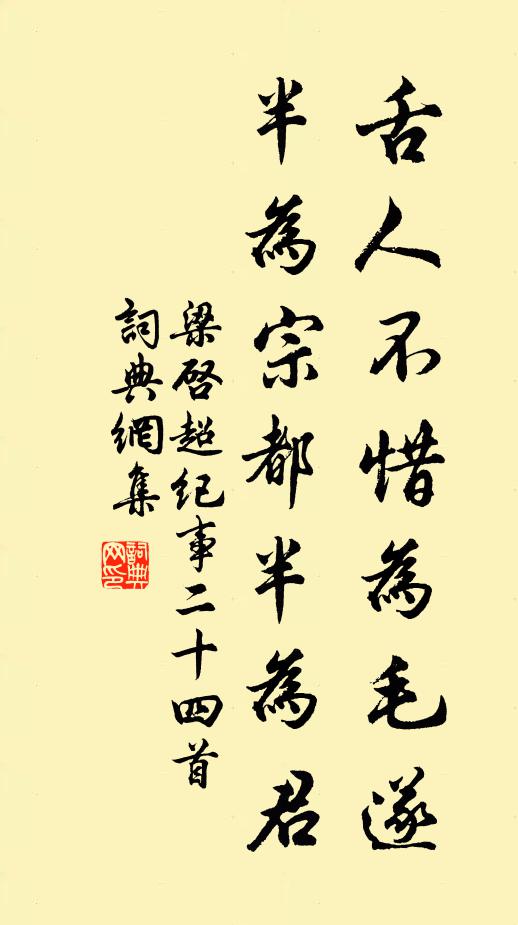 舌人不惜為毛遂
半為宗都半為君
梁啓超紀事二十四首
詞典網集
詞典網印